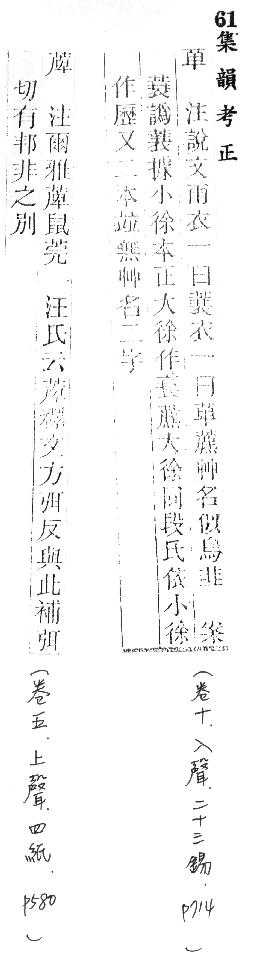 61集韻考正
萆 注說文雨衣一曰蓑衣一曰萆藨艸名似烏韭 案
蓑譌蓑據小徐本正大徐作蓑藨大徐同段氏依小徐
作歷又二本竝無艸名二字
(卷十、入聲、二十三錫、p714)
萞 注爾雅萞鼠莞 汪氏云萞釋文方弭反與此補弭
切有邦非之別
(卷五、上聲、四紙、p580)